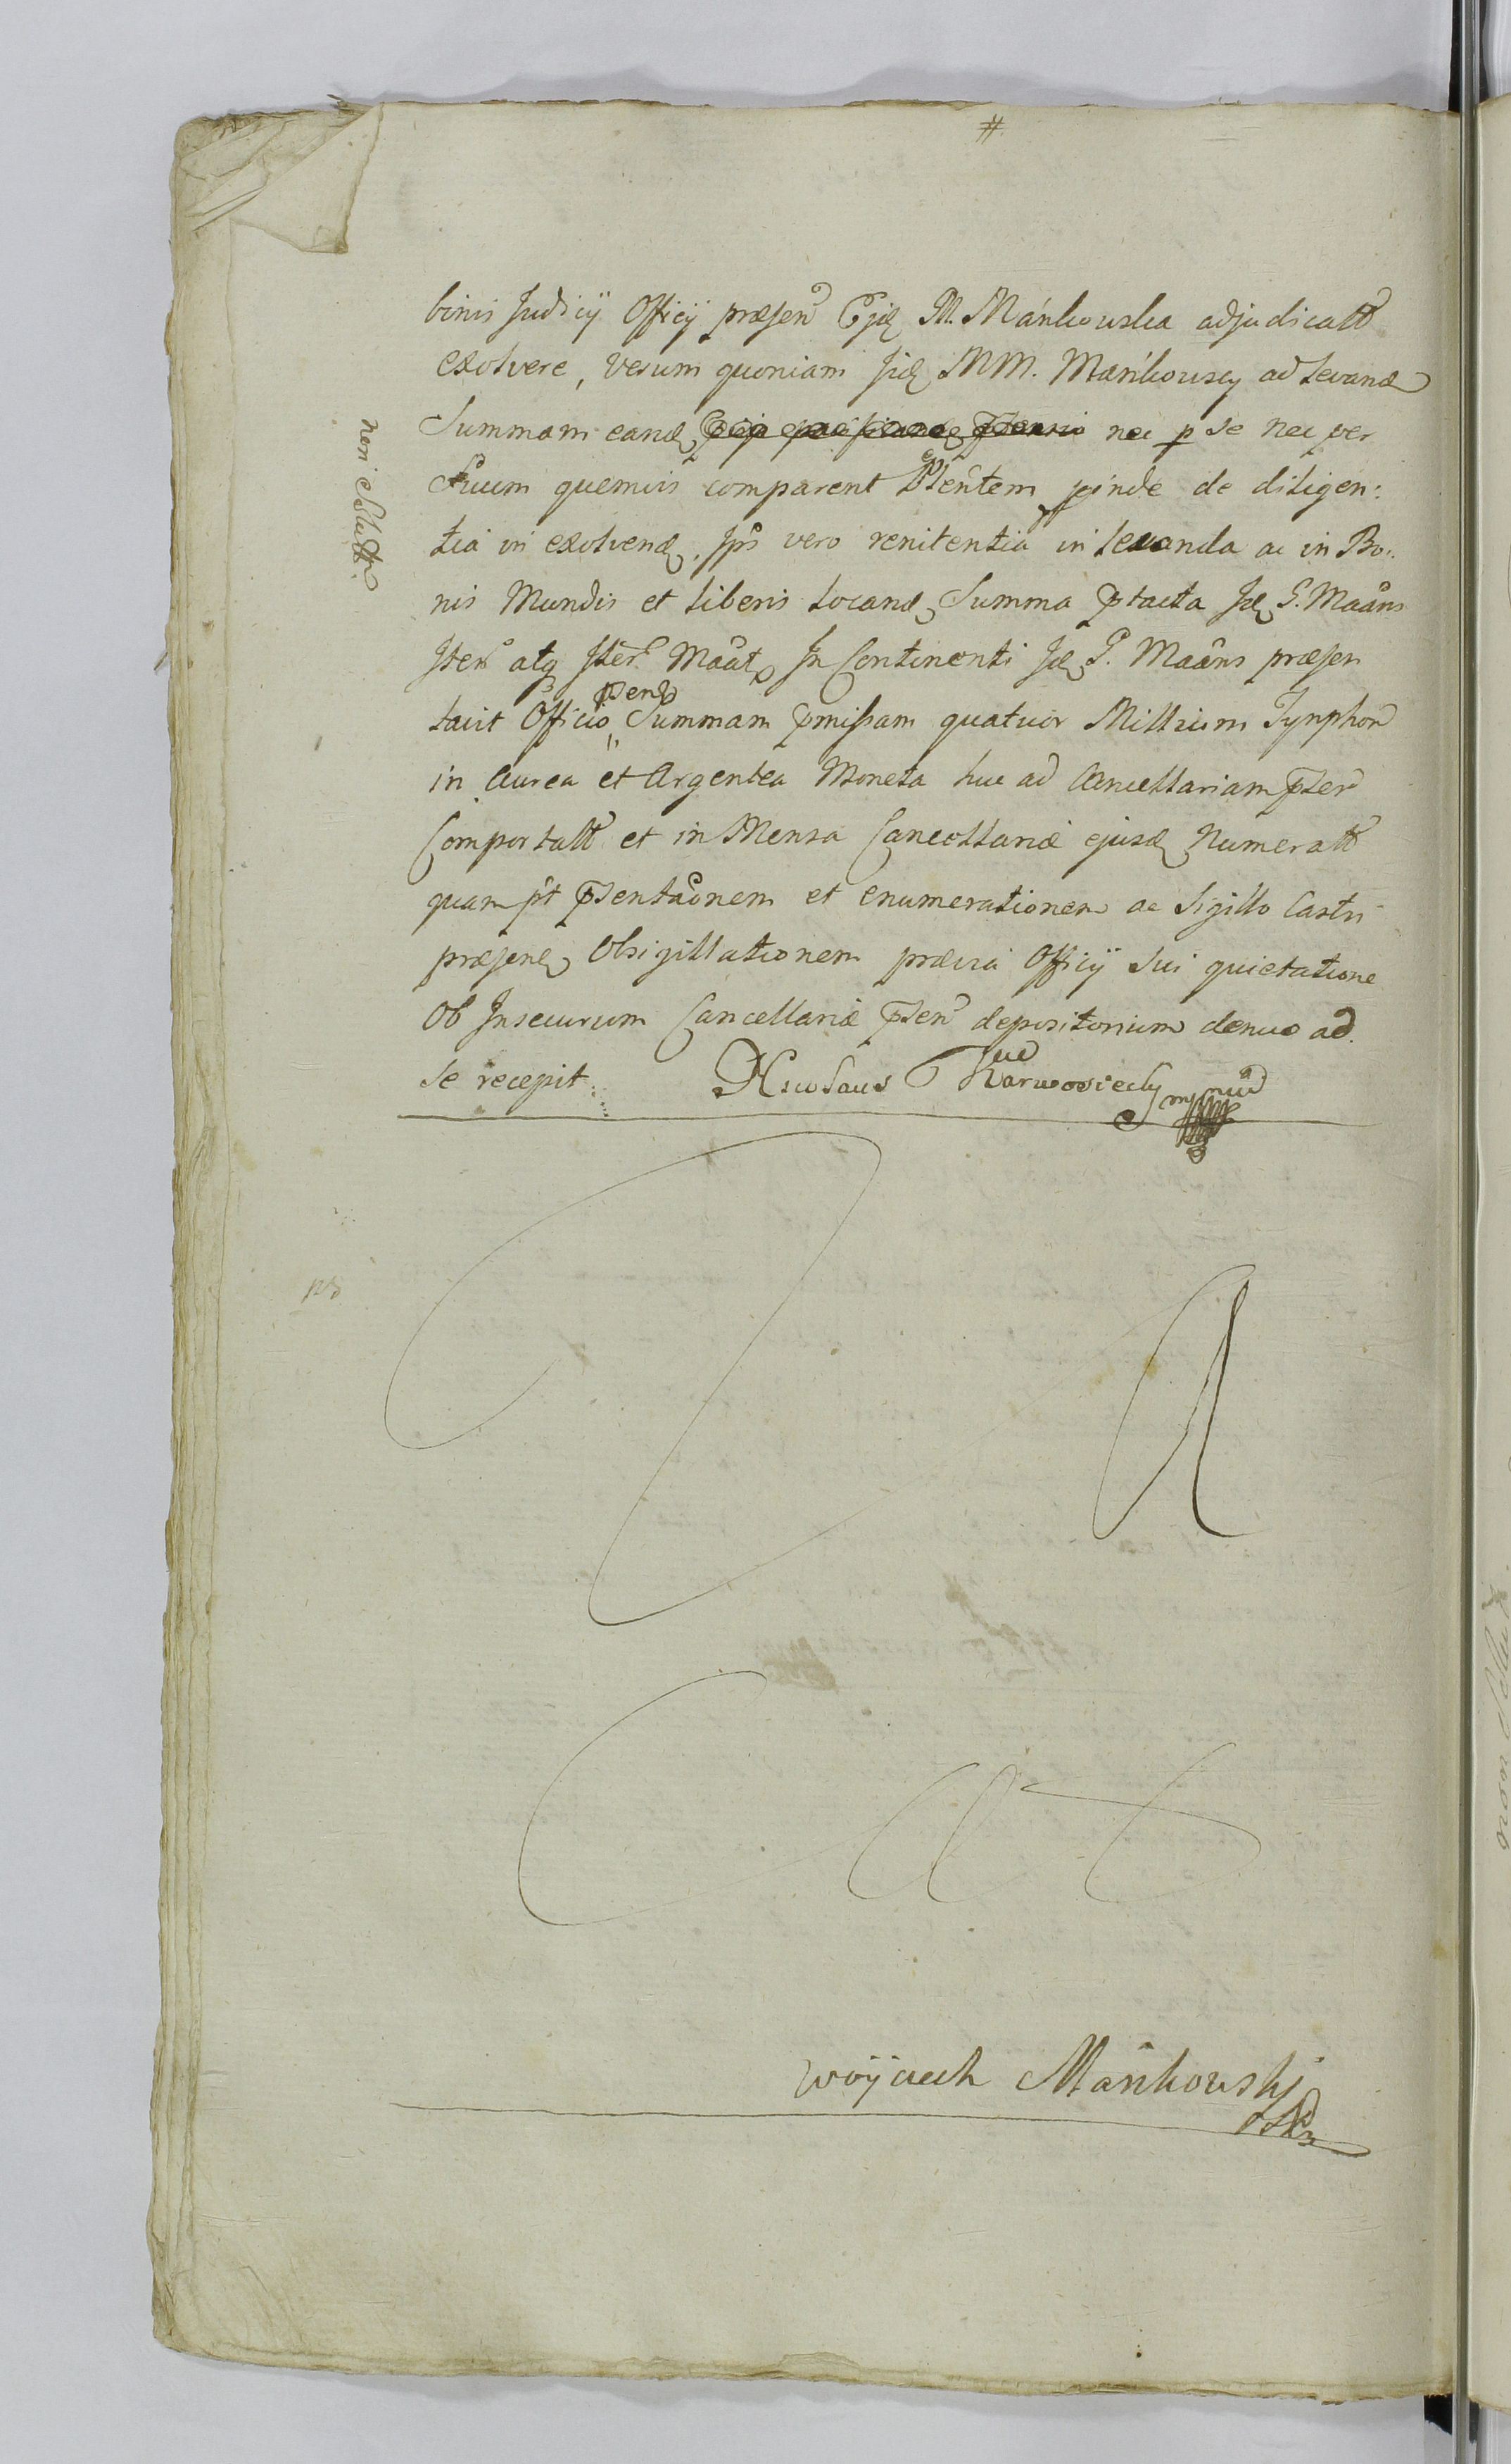 #
binis Judicÿ Officÿ præsen M. Mańkowska adjudicatt
exolvere, verum quoniam MM. Mańkowscy ad levand
Summam eand nec p se nec per
Suum quemvis comparent pinde de diligen:
tia in exolvend, Ips vero renitentia in levanda ac in Bo:
nis Mundis et Liberis locand Summa ptacta Id G. Maâns
Iter atq Iter Maât In Continenti Id G. Maâns præsen
psend
tavit Officio Summam pmissam quatuor Millium Tynphor
in Aurea et Argentea Moneta huc ad Cancellariam psen
Comportatt et in Mensa Cancellariæ ejusd Numeratt
quam pt psentaonem et enumerationem ac Sigillo Castri
præsend Obsigillationem prævia Officÿ Sui quietatione
Ob Insecurum Cancellariæ psen depositorium denuo ad
Se recepit. Nicolaus Karwosiecky mp
non
Woÿciech Mańkowski